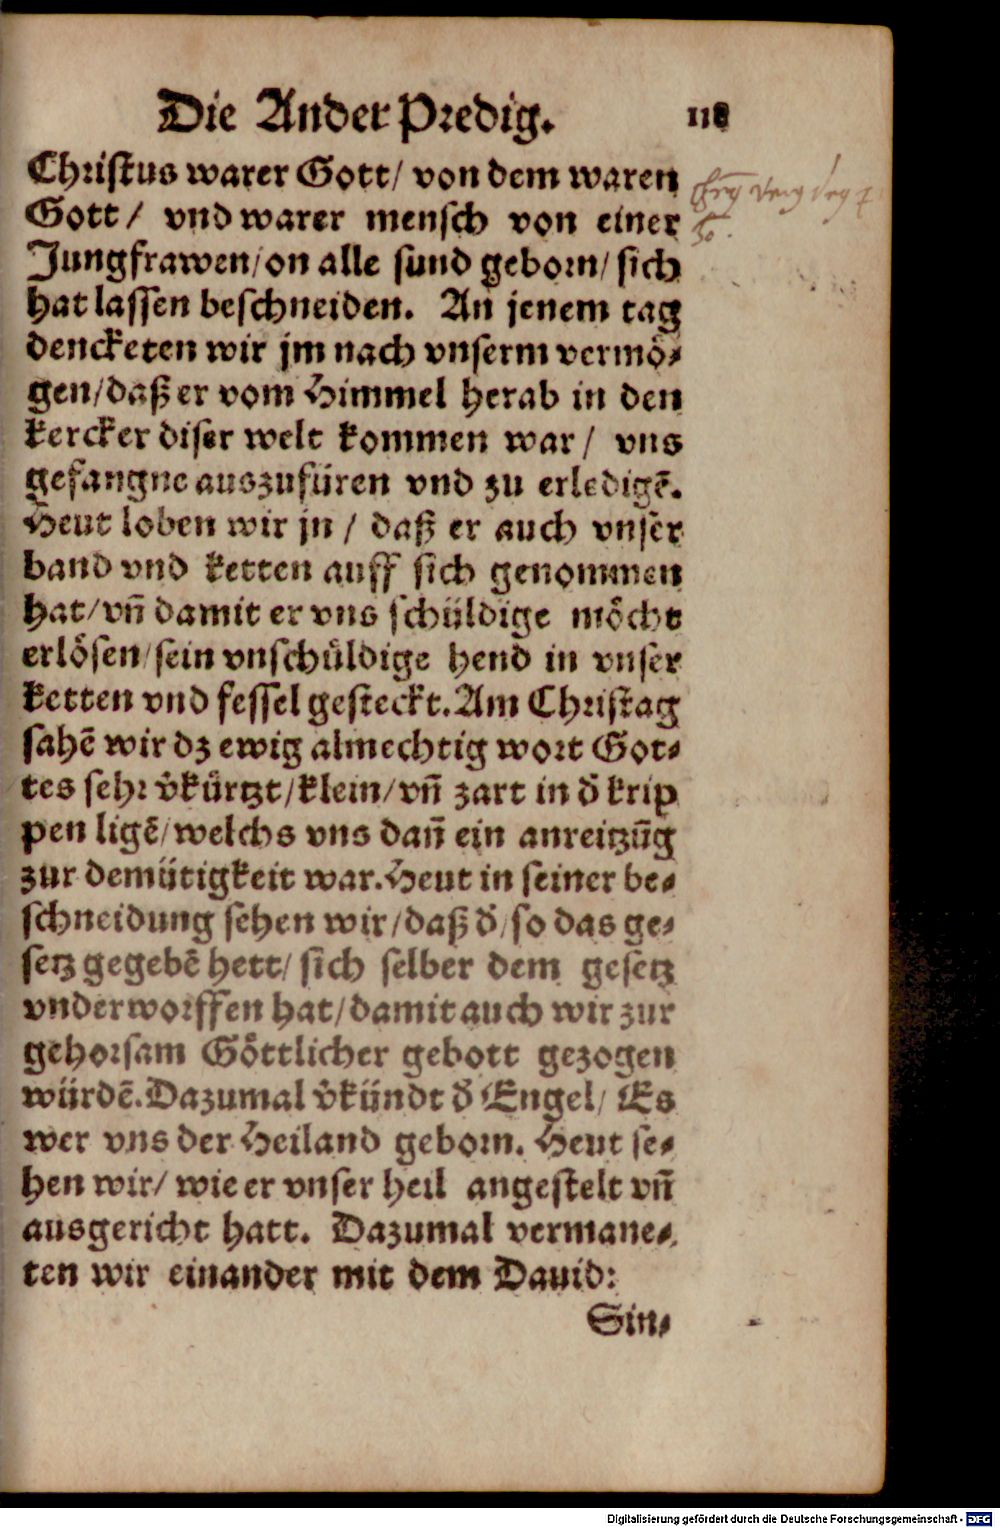 Die Ander Predig. 118
Christus warer Gott/ von dem waren
Gott/ vnd warer mensch von einer
Jungfrawen/on alle sund geborn/ sich
hat lassen beschneiden. An jenem tag
dencketen wir jm nach vnserm vermoͤ-
gen/daß er vom Himmel herab in den
kercker diser welt kommen war/ vns
gefangne auszufüren vnd zu erledigẽ.
Heut loben wir jn / daß er auch vnser
band vnd ketten auff sich genommen
hat/vñ damit er vns schüldige moͤcht
erloͤsen/sein vnschuͤldige hend in vnser
ketten vnd fessel gesteckt. Am Christag
sahẽ wir dz ewig almechtig wort Got-
tes sehr v̾kuͤrtzt/klein/vñ zart in d̾ krip
pen ligẽ/welchs vns dañ ein anreitzũg
zur demütigkeit war. Heut in seiner be-
schneidung sehen wir/daß d̾/so das ge-
setz gegebẽ hett/ sich selber dem gesetz
vnderworffen hat/damit auch wir zur
gehorsam Goͤttlicher gebott gezogen
würdẽ. Dazumal v̾kündt d̾ Engel/ Es
wer vns der Heiland geborn. Heut se-
hen wir/ wie er vnser heil angestelt vñ
ausgericht hatt. Dazumal vermane-
ten wir einander mit dem Dauid:
Sin-
Digitalisierung gefördert durch die Deutsche Forschungsgemeinschaft - DFG